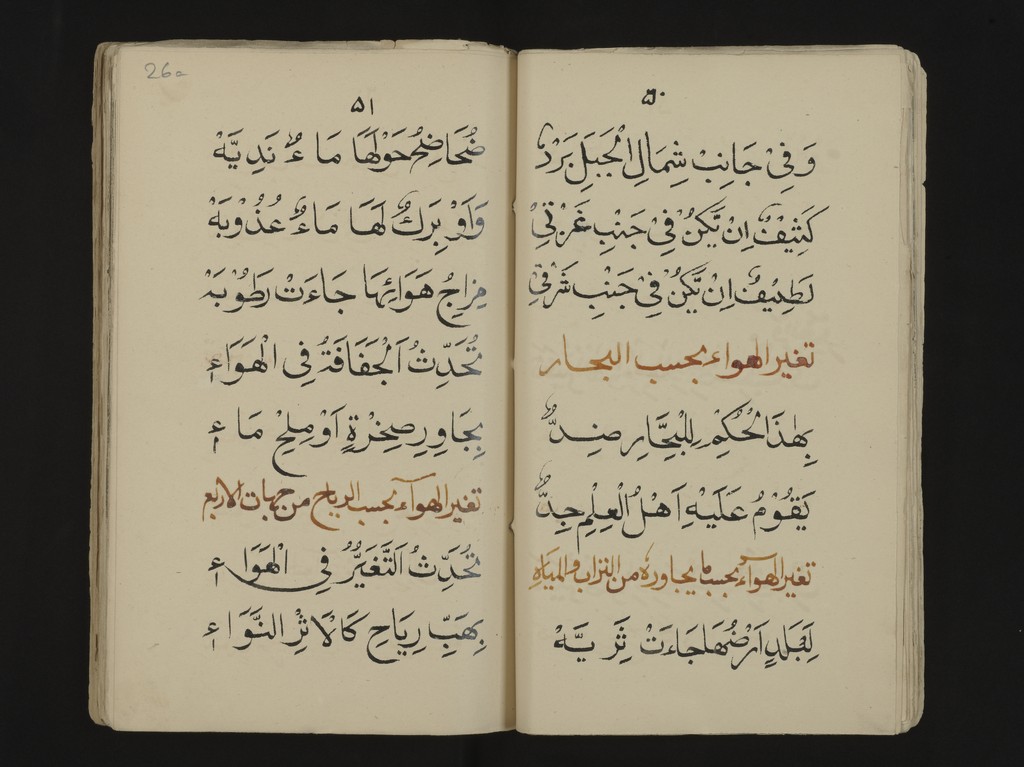 ۵۰
وَفِیْ جَانِبْ شِمَالِ الْجَبَلِ بَرْدٌ
كَثِیْفٌ اِنْ یَّكُنْ فِیْ جَنْبِ غَرْبِیْ
لَطِیْفٌ اِنْ یَّكُنْ فِیْ جَنْبِ شَرْقِیْ
تغیر الهواء بحسب البحار
بِهٰذَا الْحُكْمِ لِلْبِحَارِ ضِدٌّ
یَقُوْمُ عَلَیْهِ اَهْلُ الْعِلْمِ جِدٌّ
تغیر الهوآء بحسب ما یجاوره من التراب والمیاه
لِبَلَدٍ اَرْضُهَا جَاءَتْ ثَرِیَّهْ
26a
۵۱
ضُحَاضِحُ حَوْلَهَا مَاءٌ نَدِیَّهْ
وَاَوْ بِرَكٌ لَهَا مَاءٌ عُذُوْبَهْ
مِزَاجُ هَوَائِهَا جَاءَتْ رَطُوْبَهْ
تُحَدِّثُ اَلْجَفَافَةُ فِی الْهَوَاءِ
بِجَاوِرِ صِخْرَةٍ اَوْ مِلْحِ مَاءِ
تغیر الهوآء بحسب الریاح من جهات الاربع
تُحَدِّثُ اَلتَّغَیُّرُ فِی الْهَوَاءِ
بِهَبِّ رِیَاحِ كَالْاَثِرْ النَّوَاءِ